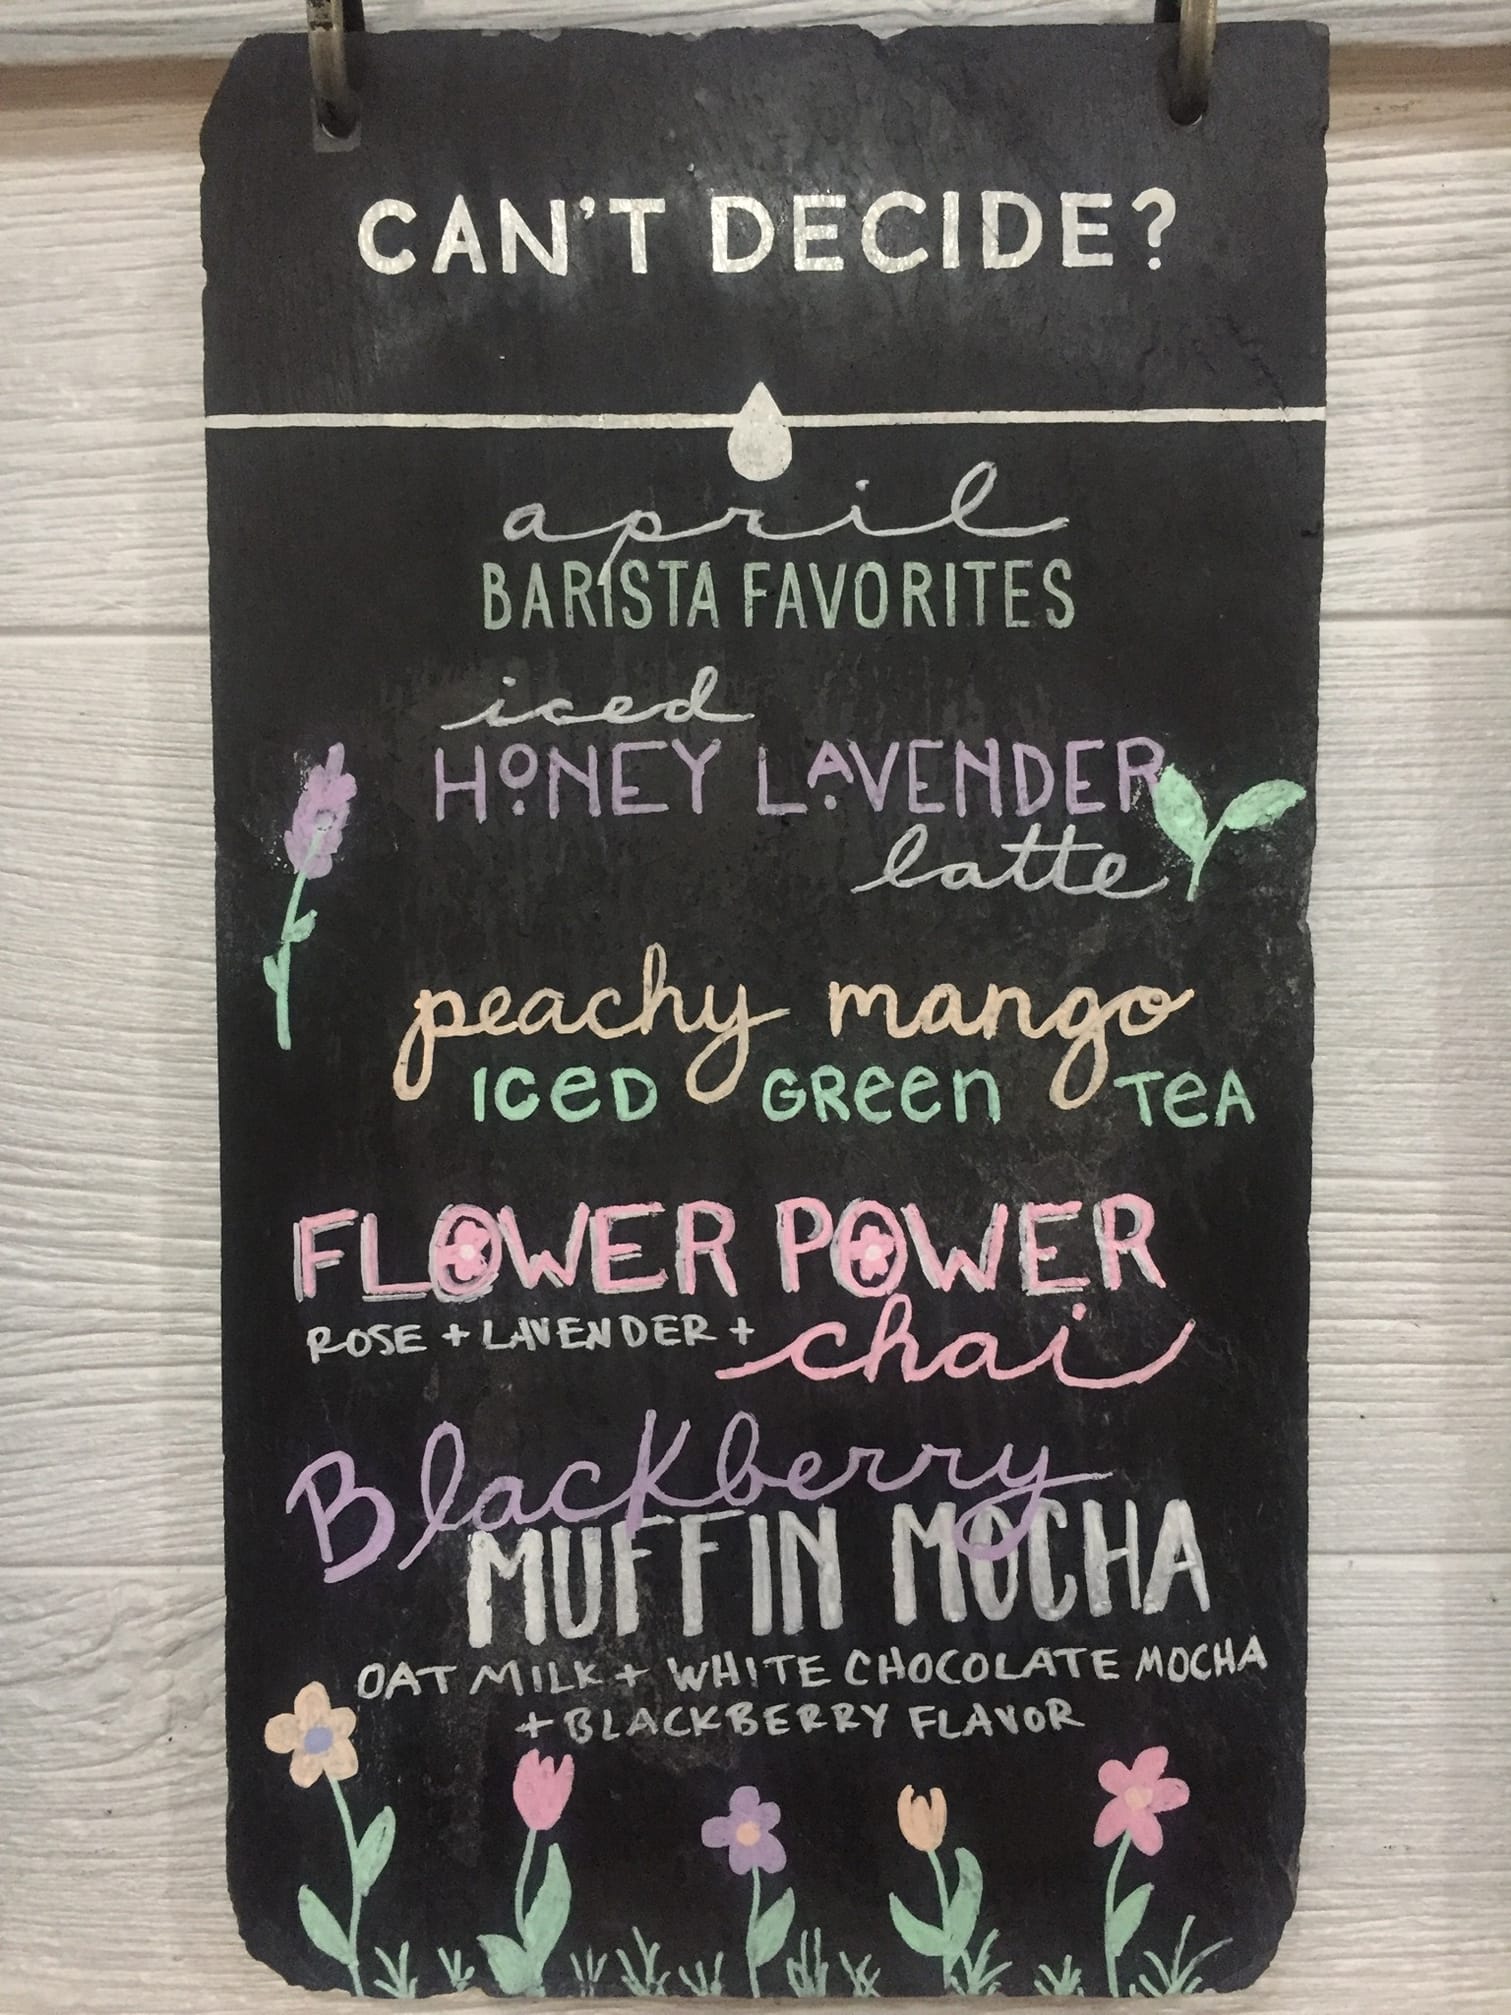 CAN'T DECIDE?
april
BARISTA FAVORITES
iced
HONEY LAVENDER
latte
peachy mango
ICeD GReen TeA
FLOWER POWER
ROSE + LAVENDER + chai
Blackberry
MUFFIN MOCHA
OAT MILK + WHITE CHOCOLATE MOCHA
+ BLACKBERRY FLAVOR